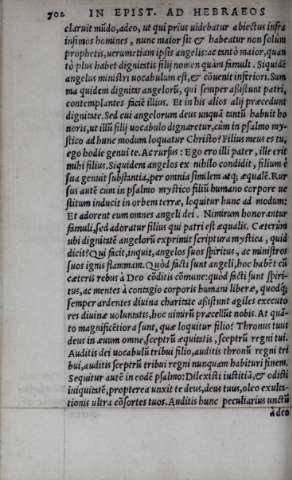 702 IN EPIST. AD HEBRAEOS
claruit mũdo, adeo, ut qui prius uidebatur abiectus infra
infimos homines, nunc maior sit & habeatur non solum
prophetis, uerumetiam ipsis angelis: ac tantò maior, quan
tò plus habet dignitatis filij nomen quàm famuli. Siquidẽ
angelus ministri uocabulum est, & cõuenit inferiori. Sum
ma quidem dignitas angelorũ, qui semper assistunt patri,
contemplantes faciẽ illius. Et in his alios alij præcedunt
dignitate. Sed cui angelorum deus unquã tantũ habuit ho
noris, ut illũ filij uocabulo dignaretur, cũm in psalmo my=
stico ad hunc modum loquatur Christo? Filius meus es tu,
ego hodie genui te. Ac rursus: Ego ero illi pater, ille erit
mihi filius. Siquidem angelos ex nihilo condidit, filium è
sua genuit substantia, per omnia similem atq; æqualẽ. Rur
sus autẽ cum in psalmo mystico filiũ humano corpore ue
stitum inducit in orbem terræ, loquitur hunc ad modum:
Et adorent eum omnes angeli dei. Nimirum honorantur
famuli, sed adoratur filius qui patri est æqualis. Cæterùm
ubi dignitatẽ angelorũ exprimit scriptura mystica, quid
dicit? Qui facit, inquit, angelos suos spiritus, ac ministros
suos ignis flammam. Quòd facti sunt angeli, hoc habẽt cũ
cæteris rebus à Deo cõditis cõmune: quod facti sunt spiri=
tus, ac mentes à contagio corporis humani liberæ, quodq;
semper ardentes diuina charitate assistunt agiles executo
res diuinæ uoluntatis, hoc nimirũ præcellũt nobis. At quã=
to magnificẽtiora sunt, quæ loquitur filio? Thronus tuus
deus in æuum omne, sceptrũ æquitatis, sceptrũ regni tui.
Auditis dei uocabulũ tribui filio, auditis thronũ regni tri
bui, auditis sceptrũ tribui regni nunquam habituri finem.
Sequitur autẽ in eodẽ psalmo: Dilexisti iustitiã, & odisti
iniquitatẽ, propterea unxit te deus, deus tuus, oleo exulta=
tionis ultra cõsortes tuos. Auditis hunc peculiarius unctũ
adeo